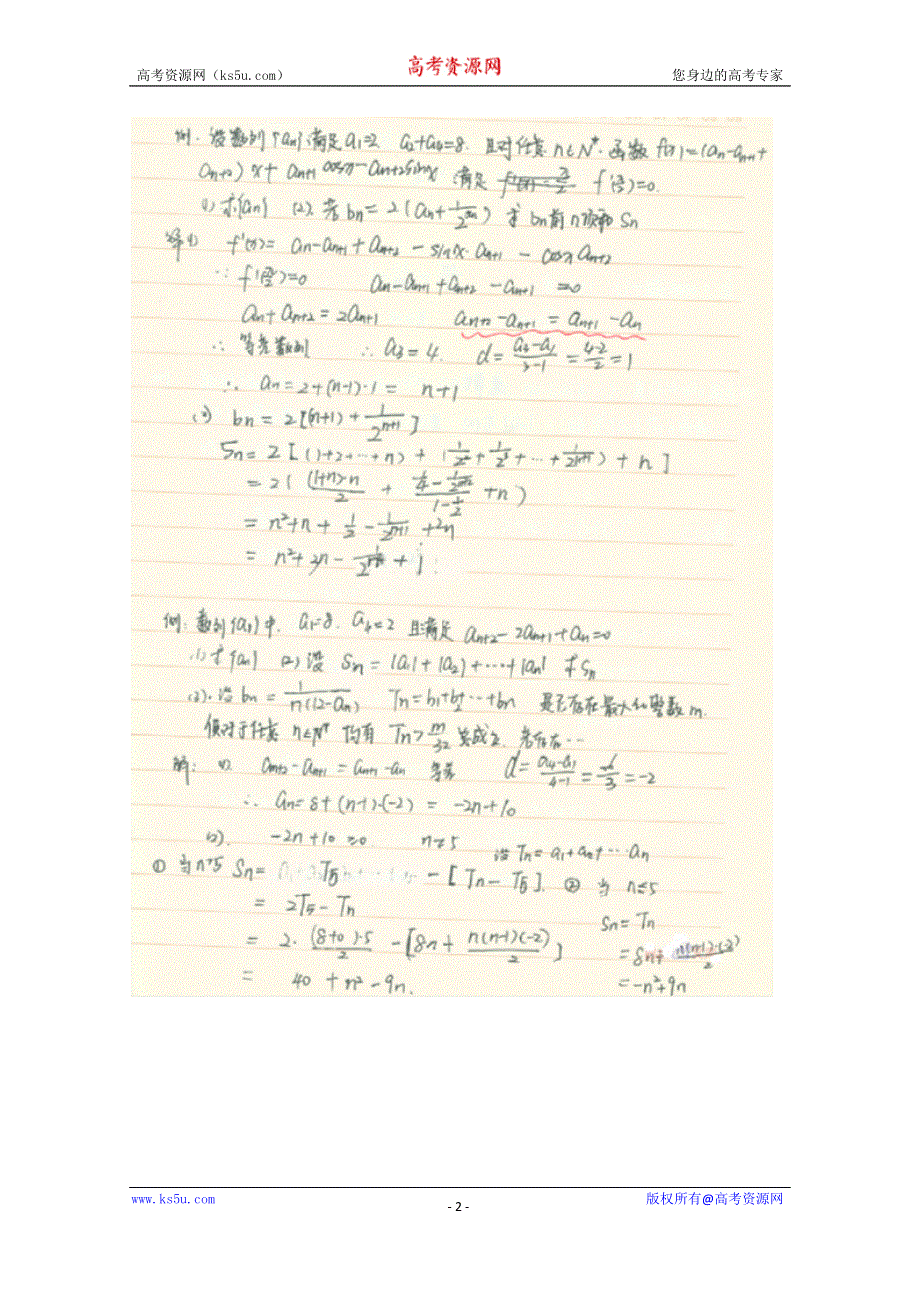 高考资源网（ks5u.com）
高考资源网
您身边的高考专家
例. 设数列{an}满足a1=2 a2+a4=8. 且对任意 n∈N*. 函数 f(x)=(an-an+1+
an+2)x+ an+1 cosx-an+2sinx 满足 f'(π/2)=0.
(1) 求{an} (2). 若 bn=2(an+1/2^an) 求 bn前n项和 Sn
解(1) f'(x)= an-an+1+an+2 - sinx·an+1 - cosx an+2
∵ f'(π/2)=0 an-an+1+an+2-an+1=0
an+an+2=2an+1 an+2-an+1=an+1-an
∴ 等差数列 ∴ a3=4. d=(a3-a1)/(3-1)=(4-2)/2=1
∴ an=2+(n-1)·1= n+1
(2) bn=2[(n+1)+1/2^(n+1)]
Sn=2[(1+2+…+n)+(1/2²+1/2³+…+1/2^(n+1))+n]
=2((1+n)·n/2 + (1/4-1/2^(n+2))/(1-1/2)+n)
= n²+n+ 1/2-1/2^(n+1) +2n
= n²+3n-
例: 数列{an}中, a1=8, a4=2 且满足 an+2-2an+1+an=0
(1) 求{an} (2) 设 Sn=|a1|+|a2|+…+|an| 求Sn
(3). 设 bn=1/n(12-an) Tn=b1+b2+…+bn 是否存在最大的整数m.
使对于任意 n∈N* 均有 Tn>m/32 总成立. 若存在…
解: (1). an+2-an+1=an+1-an 等差 d=(a4-a1)/(4-1)=-6/3=-2
∴ an=8+(n-1)·(-2) = -2n+10
(2). -2n+10≥0 n≤5 设Tn=a1+a2+…an
① 当n>5 Sn= T5 -[Tn-T5]. ② 当 n≤5
= 2T5-Tn Sn=Tn
= 2·(8+0)·5/2 -[8n+n(n-1)(-2)/2] =8n+n(n-1)·(-2)/2
= 40+n²-9n. =-n²+9n
www.ks5u.com
- 2 -
版权所有@高考资源网